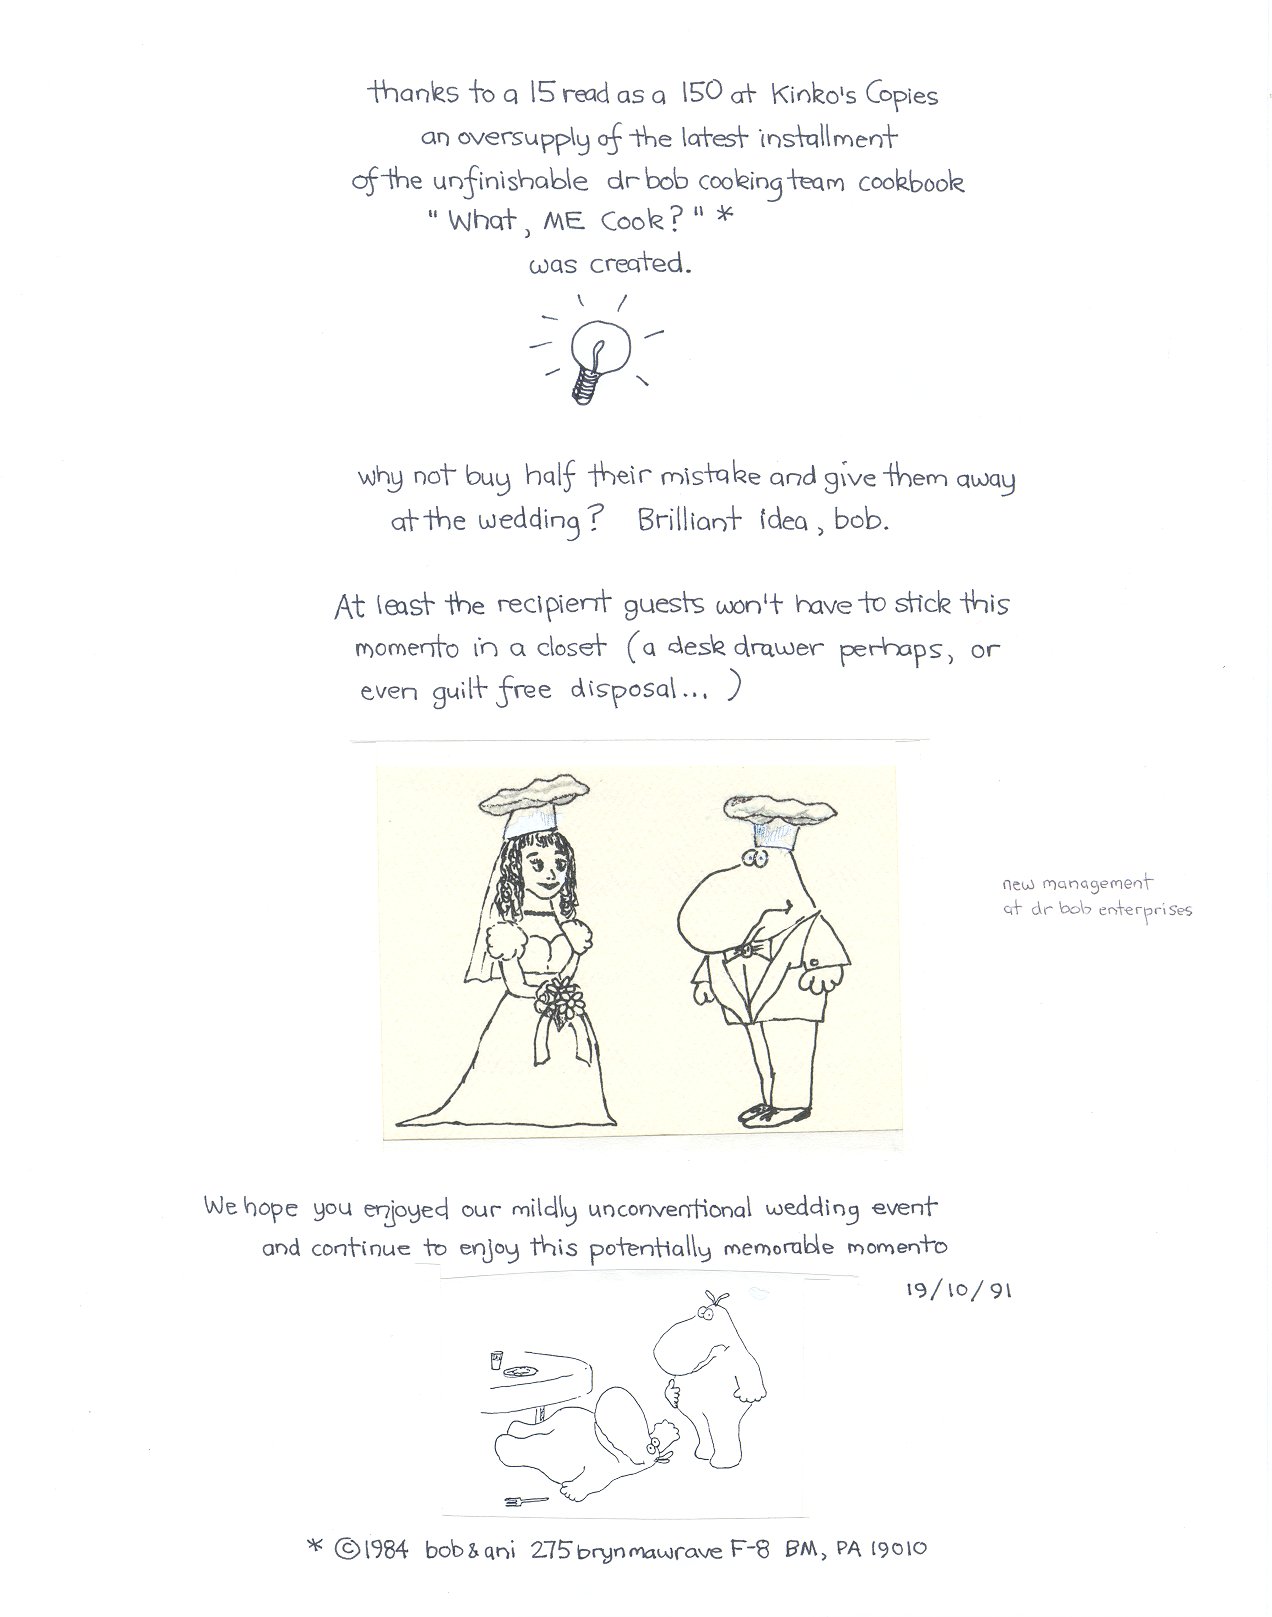 thanks to a 15 read as a 150 at Kinko's Copies
an oversupply of the latest installment
of the unfinishable dr bob cooking team cookbook
"What, ME Cook?" *
was created.
why not buy half their mistake and give them away
at the wedding? Brilliant idea, bob.
At least the recipient guests won't have to stick this
momento in a closet (a desk drawer perhaps, or
even guilt free disposal... )
new management
at dr bob enterprises
We hope you enjoyed our mildly unconventional wedding event
and continue to enjoy this potentially memorable momento
19/10/91
* ©1984 bob & ani 275 brynmawrave F-8 BM, PA 19010